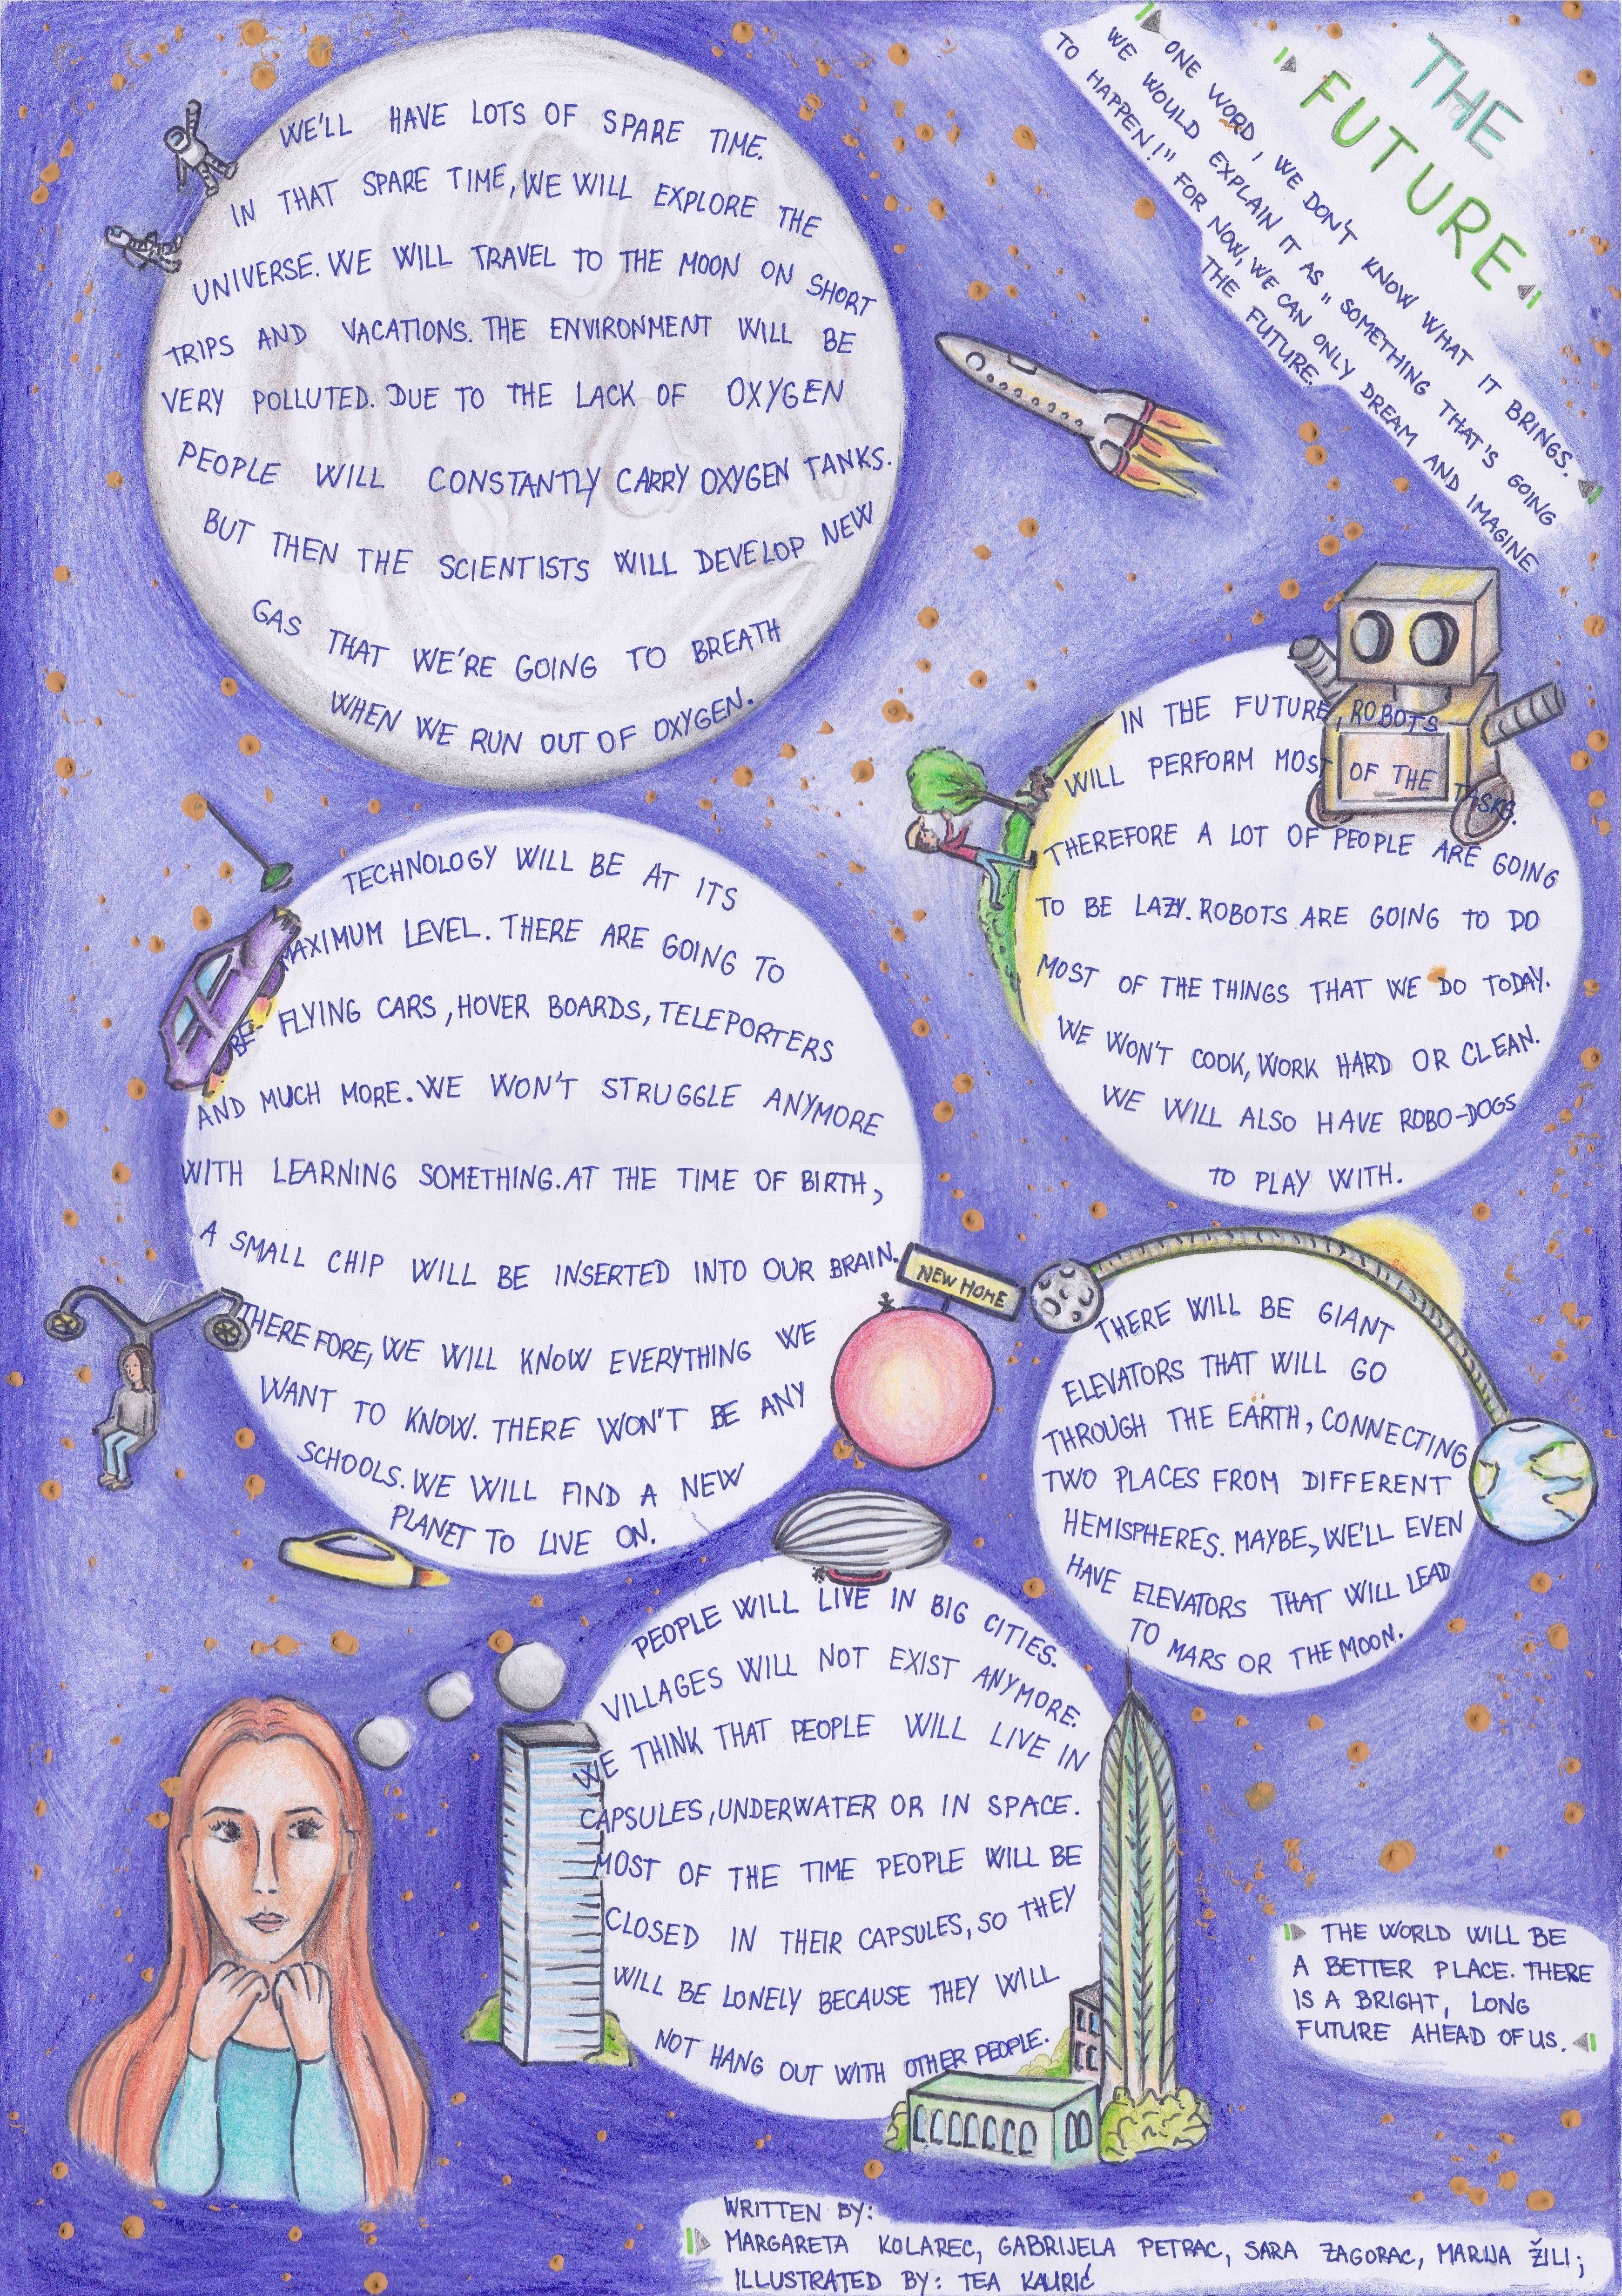 THE
FUTURE
ONE WORD, WE DON'T KNOW WHAT IT BRINGS.
WE WOULD EXPLAIN IT AS „SOMETHING THAT'S GOING
TO HAPPEN!" FOR NOW, WE CAN ONLY DREAM AND IMAGINE
THE FUTURE.
WE'LL HAVE LOTS OF SPARE TIME.
IN THAT SPARE TIME, WE WILL EXPLORE THE
UNIVERSE. WE WILL TRAVEL TO THE MOON ON SHORT
TRIPS AND VACATIONS. THE ENVIRONMENT WILL BE
VERY POLLUTED. DUE TO THE LACK OF OXYGEN
PEOPLE WILL CONSTANTLY CARRY OXYGEN TANKS.
BUT THEN THE SCIENTISTS WILL DEVELOP NEW
GAS THAT WE'RE GOING TO BREATH
WHEN WE RUN OUT OF OXYGEN.
IN THE FUTURE, ROBOTS
WILL PERFORM MOST OF THE TASKS.
THEREFORE A LOT OF PEOPLE ARE GOING
TO BE LAZY. ROBOTS ARE GOING TO DO
MOST OF THE THINGS THAT WE DO TODAY.
WE WON'T COOK, WORK HARD OR CLEAN.
WE WILL ALSO HAVE ROBO-DOGS
TO PLAY WITH.
TECHNOLOGY WILL BE AT ITS
MAXIMUM LEVEL. THERE ARE GOING TO
BE FLYING CARS, HOVER BOARDS, TELEPORTERS
AND MUCH MORE. WE WON'T STRUGGLE ANYMORE
WITH LEARNING SOMETHING. AT THE TIME OF BIRTH,
A SMALL CHIP WILL BE INSERTED INTO OUR BRAIN.
THEREFORE, WE WILL KNOW EVERYTHING WE
WANT TO KNOW. THERE WON'T BE ANY
SCHOOLS. WE WILL FIND A NEW
PLANET TO LIVE ON.
NEW HOME
THERE WILL BE GIANT
ELEVATORS THAT WILL GO
THROUGH THE EARTH, CONNECTING
TWO PLACES FROM DIFFERENT
HEMISPHERES. MAYBE, WE'LL EVEN
HAVE ELEVATORS THAT WILL LEAD
TO MARS OR THE MOON.
PEOPLE WILL LIVE IN BIG CITIES.
VILLAGES WILL NOT EXIST ANYMORE.
WE THINK THAT PEOPLE WILL LIVE IN
CAPSULES, UNDERWATER OR IN SPACE.
MOST OF THE TIME PEOPLE WILL BE
CLOSED IN THEIR CAPSULES, SO THEY
WILL BE LONELY BECAUSE THEY WILL
NOT HANG OUT WITH OTHER PEOPLE.
THE WORLD WILL BE
A BETTER PLACE. THERE
IS A BRIGHT, LONG
FUTURE AHEAD OF US.
WRITTEN BY:
MARGARETA KOLAREC, GABRIJELA PETRAC, SARA ZAGORAC, MARIJA ŽILI;
ILLUSTRATED BY: TEA KAURIĆ